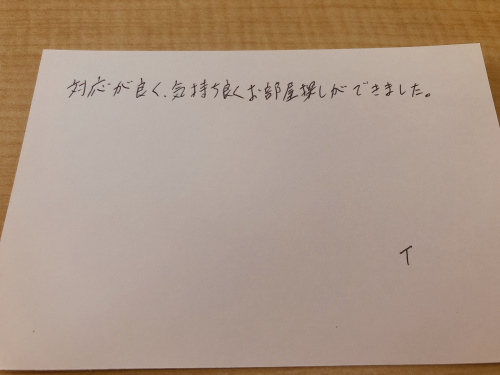 対応が良く、気持ち良くお部屋探しができました。
T